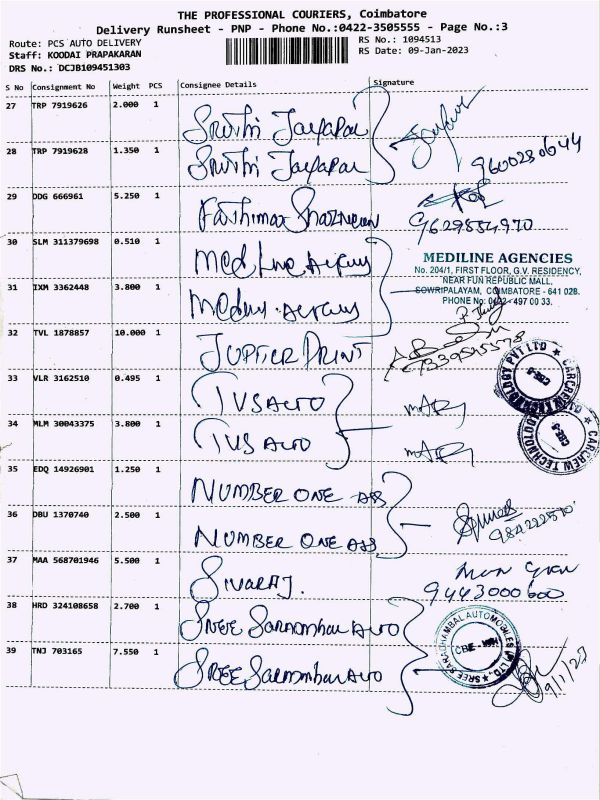 THE PROFESSIONAL COURIERS, Coimbatore
Delivery Runsheet - PNP - Phone No.:0422-3505555 - Page No.:3
Route: PCS AUTO DELIVERY
RS No.: 1094513
Staff: KOODAI PRAPAKARAN
RS Date: 09-Jan-2023
DRS No.: DCJB109451303
S No Consignment No Weight PCS Consignee Details Signature
27 TRP 7919626 2.000 1 Sruthi Jayapal
28 TRP 7919628 1.350 1 Sruthi Jayapal
9600230644
29 DDG 666961 5.250 1 Fathima
9629554970
30 SLM 311379698 0.510 1 Med Line
MEDILINE AGENCIES
No. 204/1, FIRST FLOOR, G.V. RESIDENCY,
NEAR FUN REPUBLIC MALL,
31 IXM 3362448 3.800 1
SOWRIPALAYAM, COIMBATORE - 641 028.
PHONE No: 0422-497 00 33.
32 TVL 1878857 10.000 1 JUPITER PRINT
33 VLR 3162510 0.495 1 TVS AUTO MARY
CARCREW TECHNOLOGY PVT LTD
CBE-5
34 MLM 30043375 3.800 1 TVS AUTO MARY
CARCREW TECHNOLOGY
CBE-5
35 EDQ 14926901 1.250 1 NUMBER ONE ASS
36 DBU 1370740 2.500 1 NUMBER ONE ASS
37 MAA 568701946 5.500 1 SIVARAJ.
9443000600
38 HRD 324108658 2.700 1 SREE Saradambal AUTO
SREE SARADHAMBAL AUTOMOBILES (P) LTD.
39 TNJ 703165 7.550 1 SREE Saradambal AUTO
9/1/23